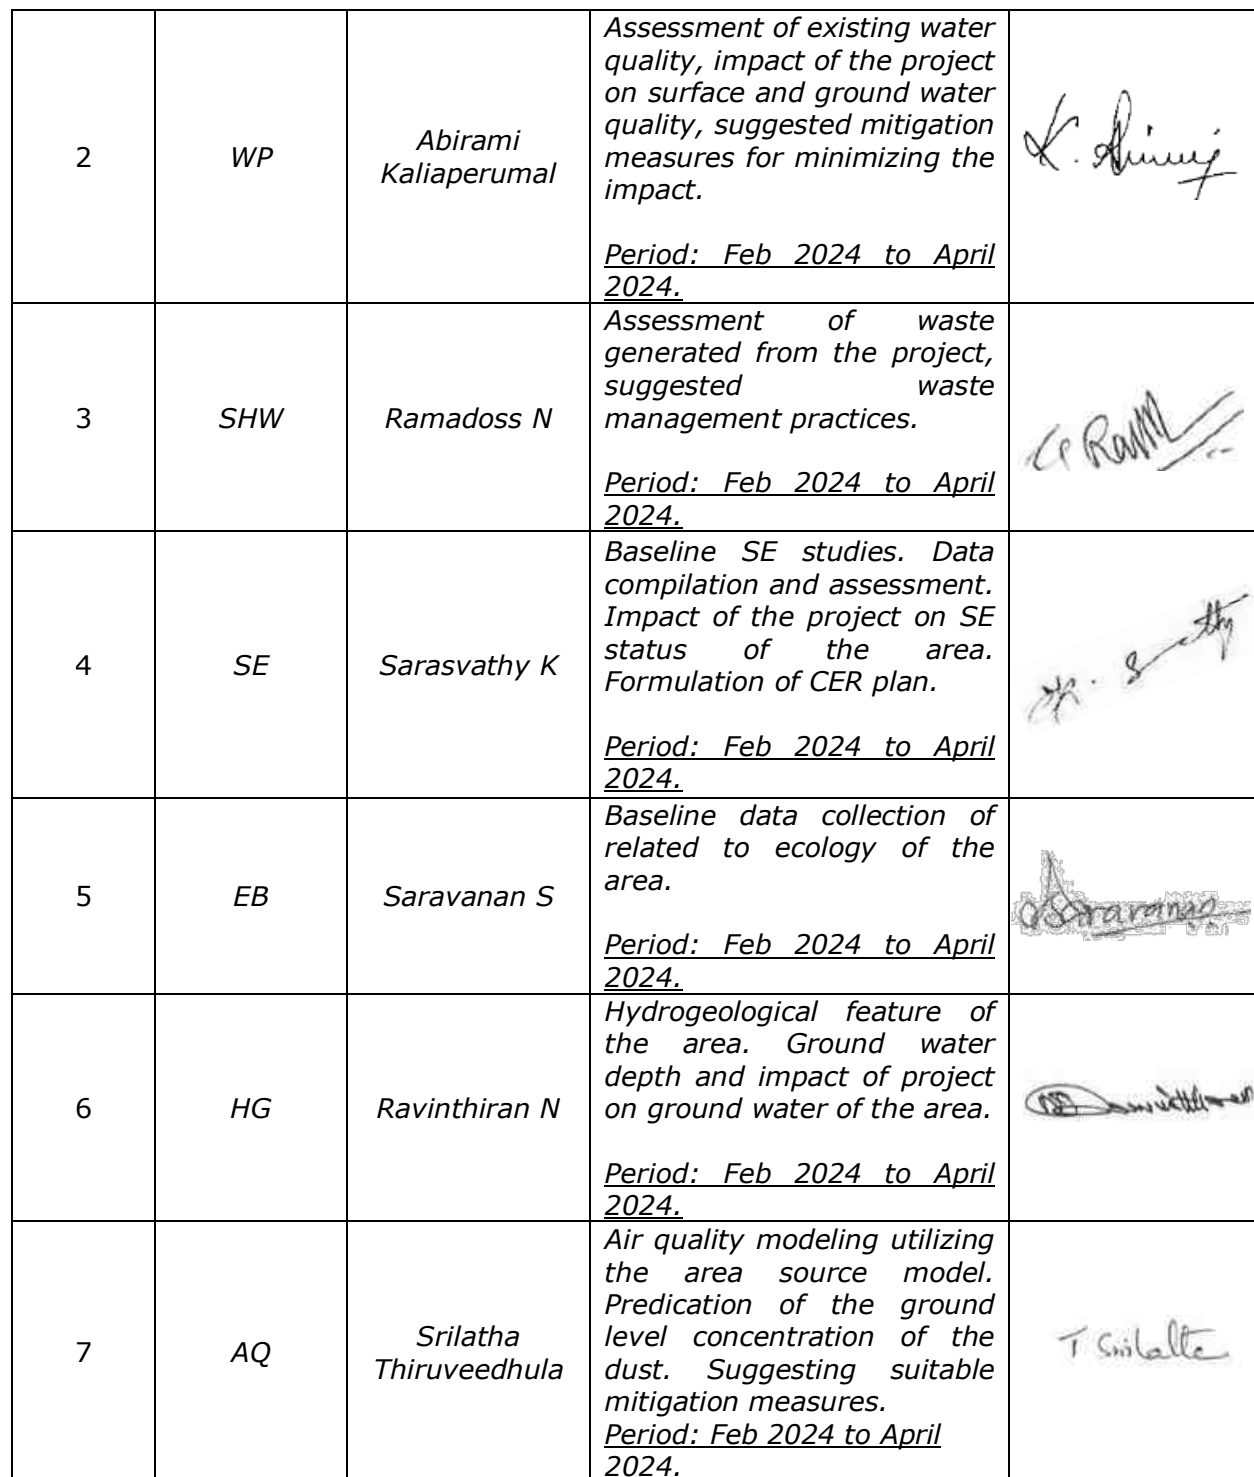 2
WP
Abirami
Kaliaperumal
Assessment of existing water
quality, impact of the project
on surface and ground water
quality, suggested mitigation
measures for minimizing the
impact.
Period: Feb 2024 to April
2024.
K.
3
SHW
Ramadoss N
Assessment of waste
generated from the project,
suggested waste
management practices.
Period: Feb 2024 to April
2024.
4
SE
Sarasvathy K
Baseline SE studies. Data
compilation and assessment.
Impact of the project on SE
status of the area.
Formulation of CER plan.
Period: Feb 2024 to April
2024.
5
EB
Saravanan S
Baseline data collection of
related to ecology of the
area.
Period: Feb 2024 to April
2024.
6
HG
Ravinthiran N
Hydrogeological feature of
the area. Ground water
depth and impact of project
on ground water of the area.
Period: Feb 2024 to April
2024.
7
AQ
Srilatha
Thiruveedhula
Air quality modeling utilizing
the area source model.
Predication of the ground
level concentration of the
dust. Suggesting suitable
mitigation measures.
Period: Feb 2024 to April
2024.